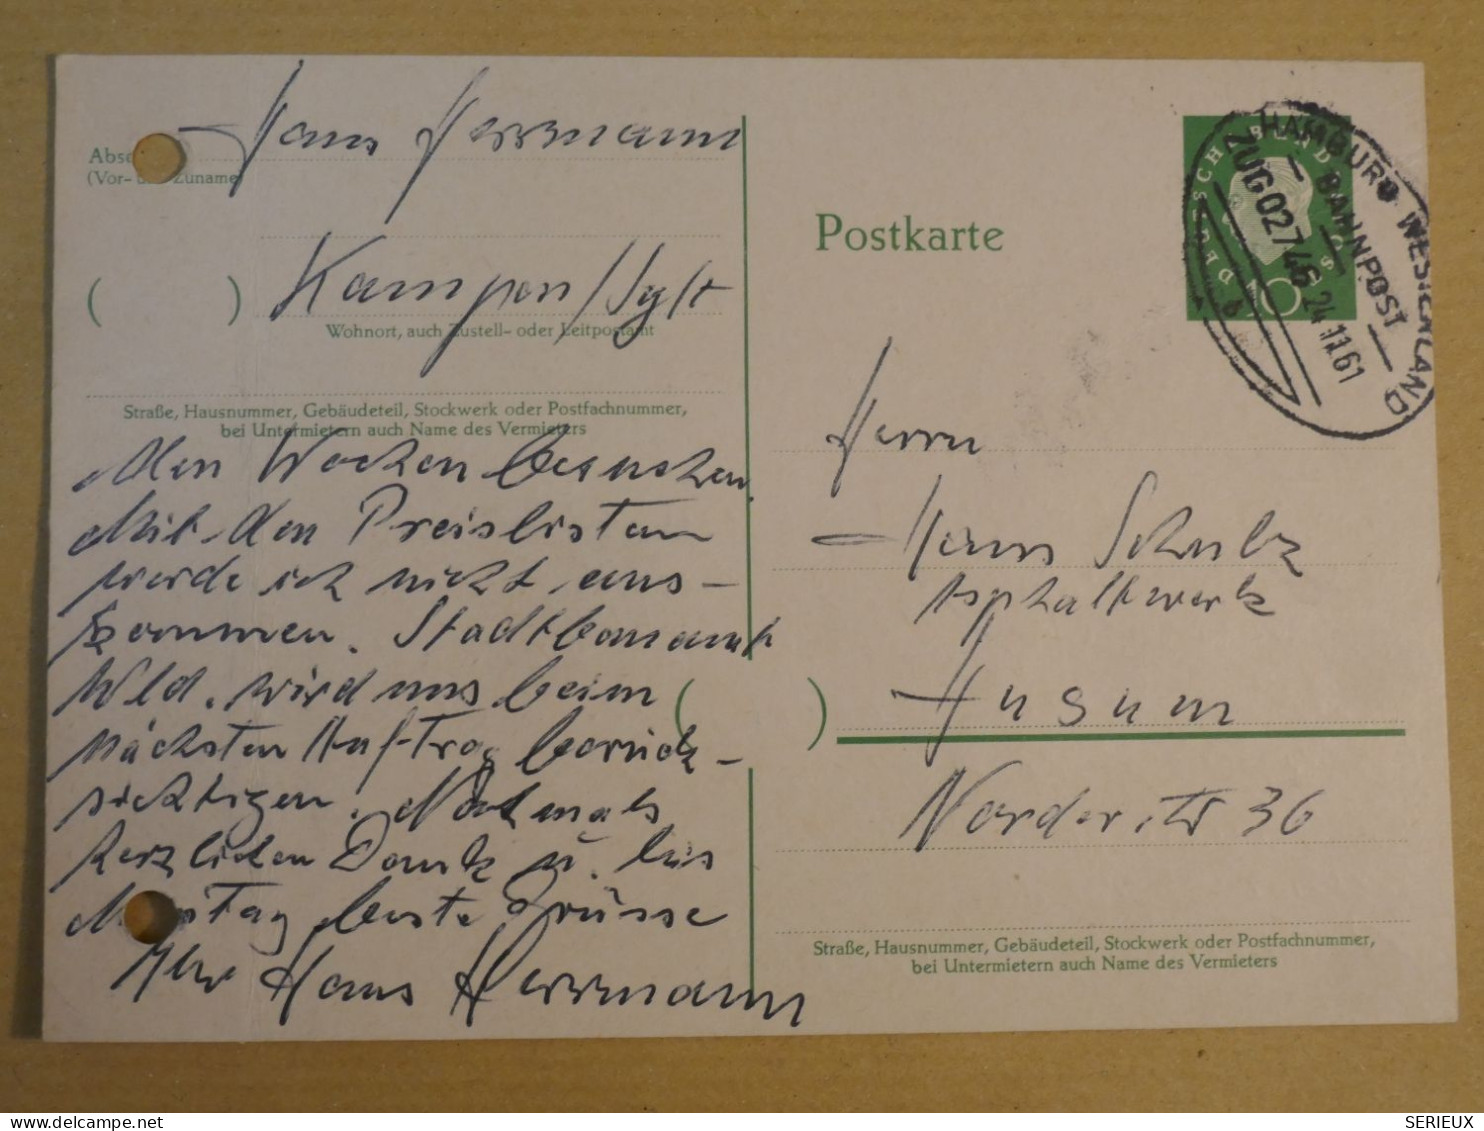 Hans Herrmann
Abs
(Vor- Zuname)
Kampen/Sylt
( )
Wohnort, auch Zustell- oder Leitpostamt
Straße, Hausnummer, Gebäudeteil, Stockwerk oder Postfachnummer,
bei Untermietern auch Name des Vermieters
den Wochen besuchen.
Mit den Preislisten
werde ich nicht aus-
kommen. Stadtbauamt
Wld. wird uns beim
nächsten Auftrag berück-
sichtigen. Nochmals
herzlichen Dank u. bis
tag beste Grüsse
Ihr Hans Herrmann
Postkarte
DEUTSCHE BUNDESPOST
10
HAMBURG WESTERLAND
BAHNPOST
ZUG 02746
24.11.61
b
Herrn
Hans Schulz
Asphaltwerk
Husum
( )
Norderstr 36
Straße, Hausnummer, Gebäudeteil, Stockwerk oder Postfachnummer,
bei Untermietern auch Name des Vermieters
SERIEUX